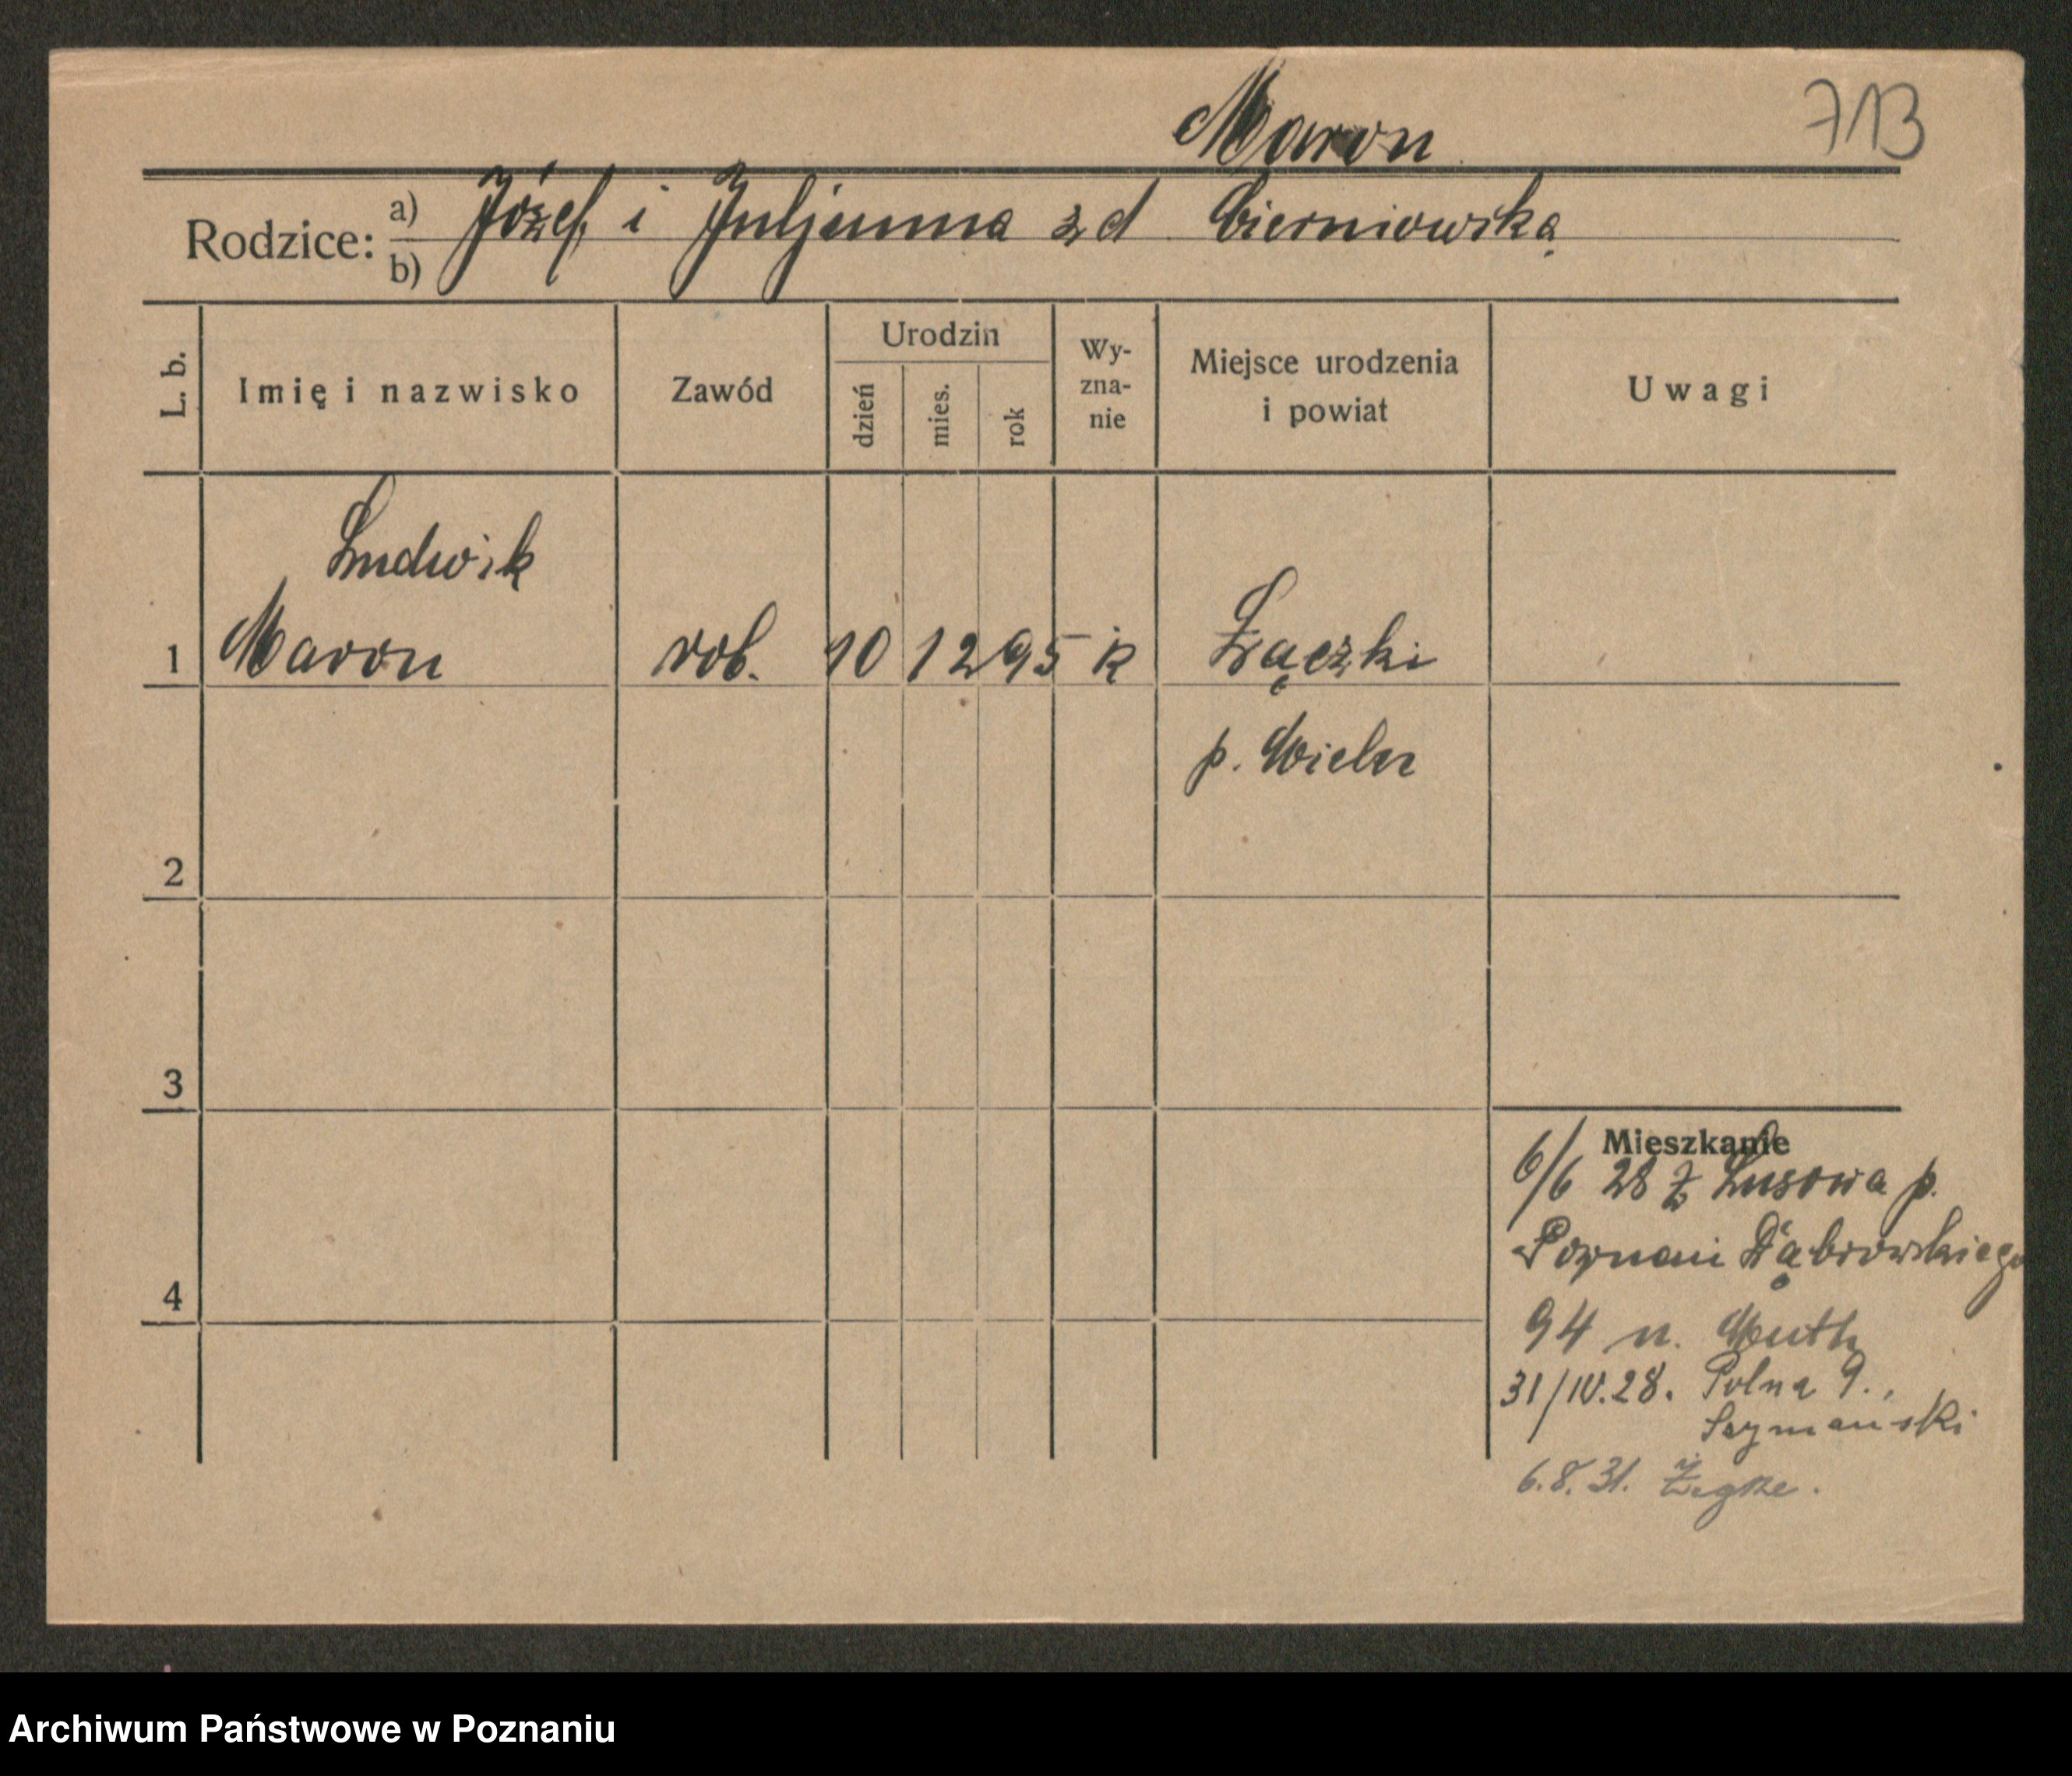 713
Maron
Rodzice: a) Józef i Juljanna z d Cierniowska
b)
L. b. Imię i nazwisko Zawód Urodzin dzień mies. rok Wy-zna-nie Miejsce urodzenia i powiat Uwagi
Ludwik
1 Maron rob. 10 12 95 k Łączki
p. Wieln
2
3
Mieszkanie
6/6 28 z Lusowa p.
Poznań Dąbrowskiego
4
94 u. Muth
31/IV.28. Polna 9.,
Szymański
6.8.31.
Archiwum Państwowe w Poznaniu